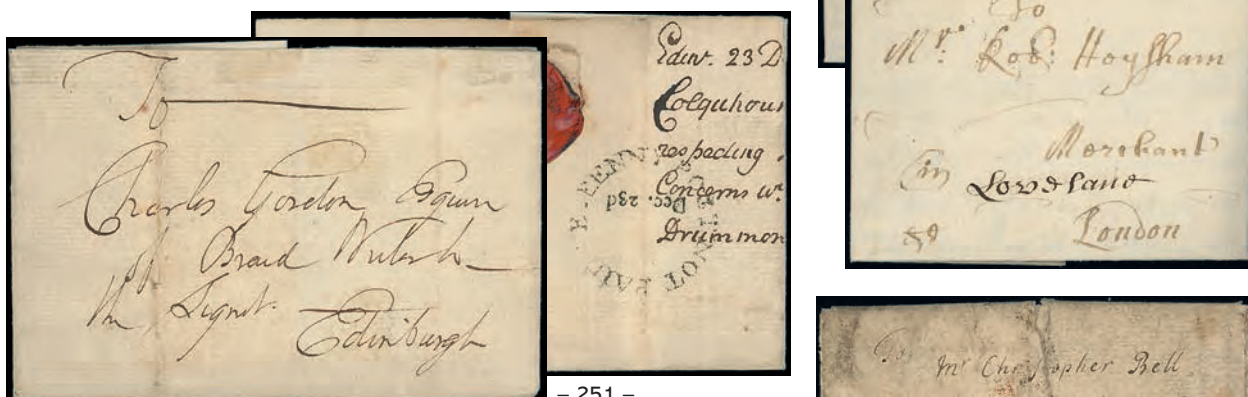 To
Charles Gordon Esquire
of Braid Writer to
the Signet.
Edinburgh
Edinr. 23 D
Colquhoun
respecting
Concerns wt.
Drummon
PENNY POST NOT PAID
Dec. 23d
– 251 –
To
Mr. Rob: Heysham
Merchant
in
Lovelane
London
To
Mr Christopher Bell